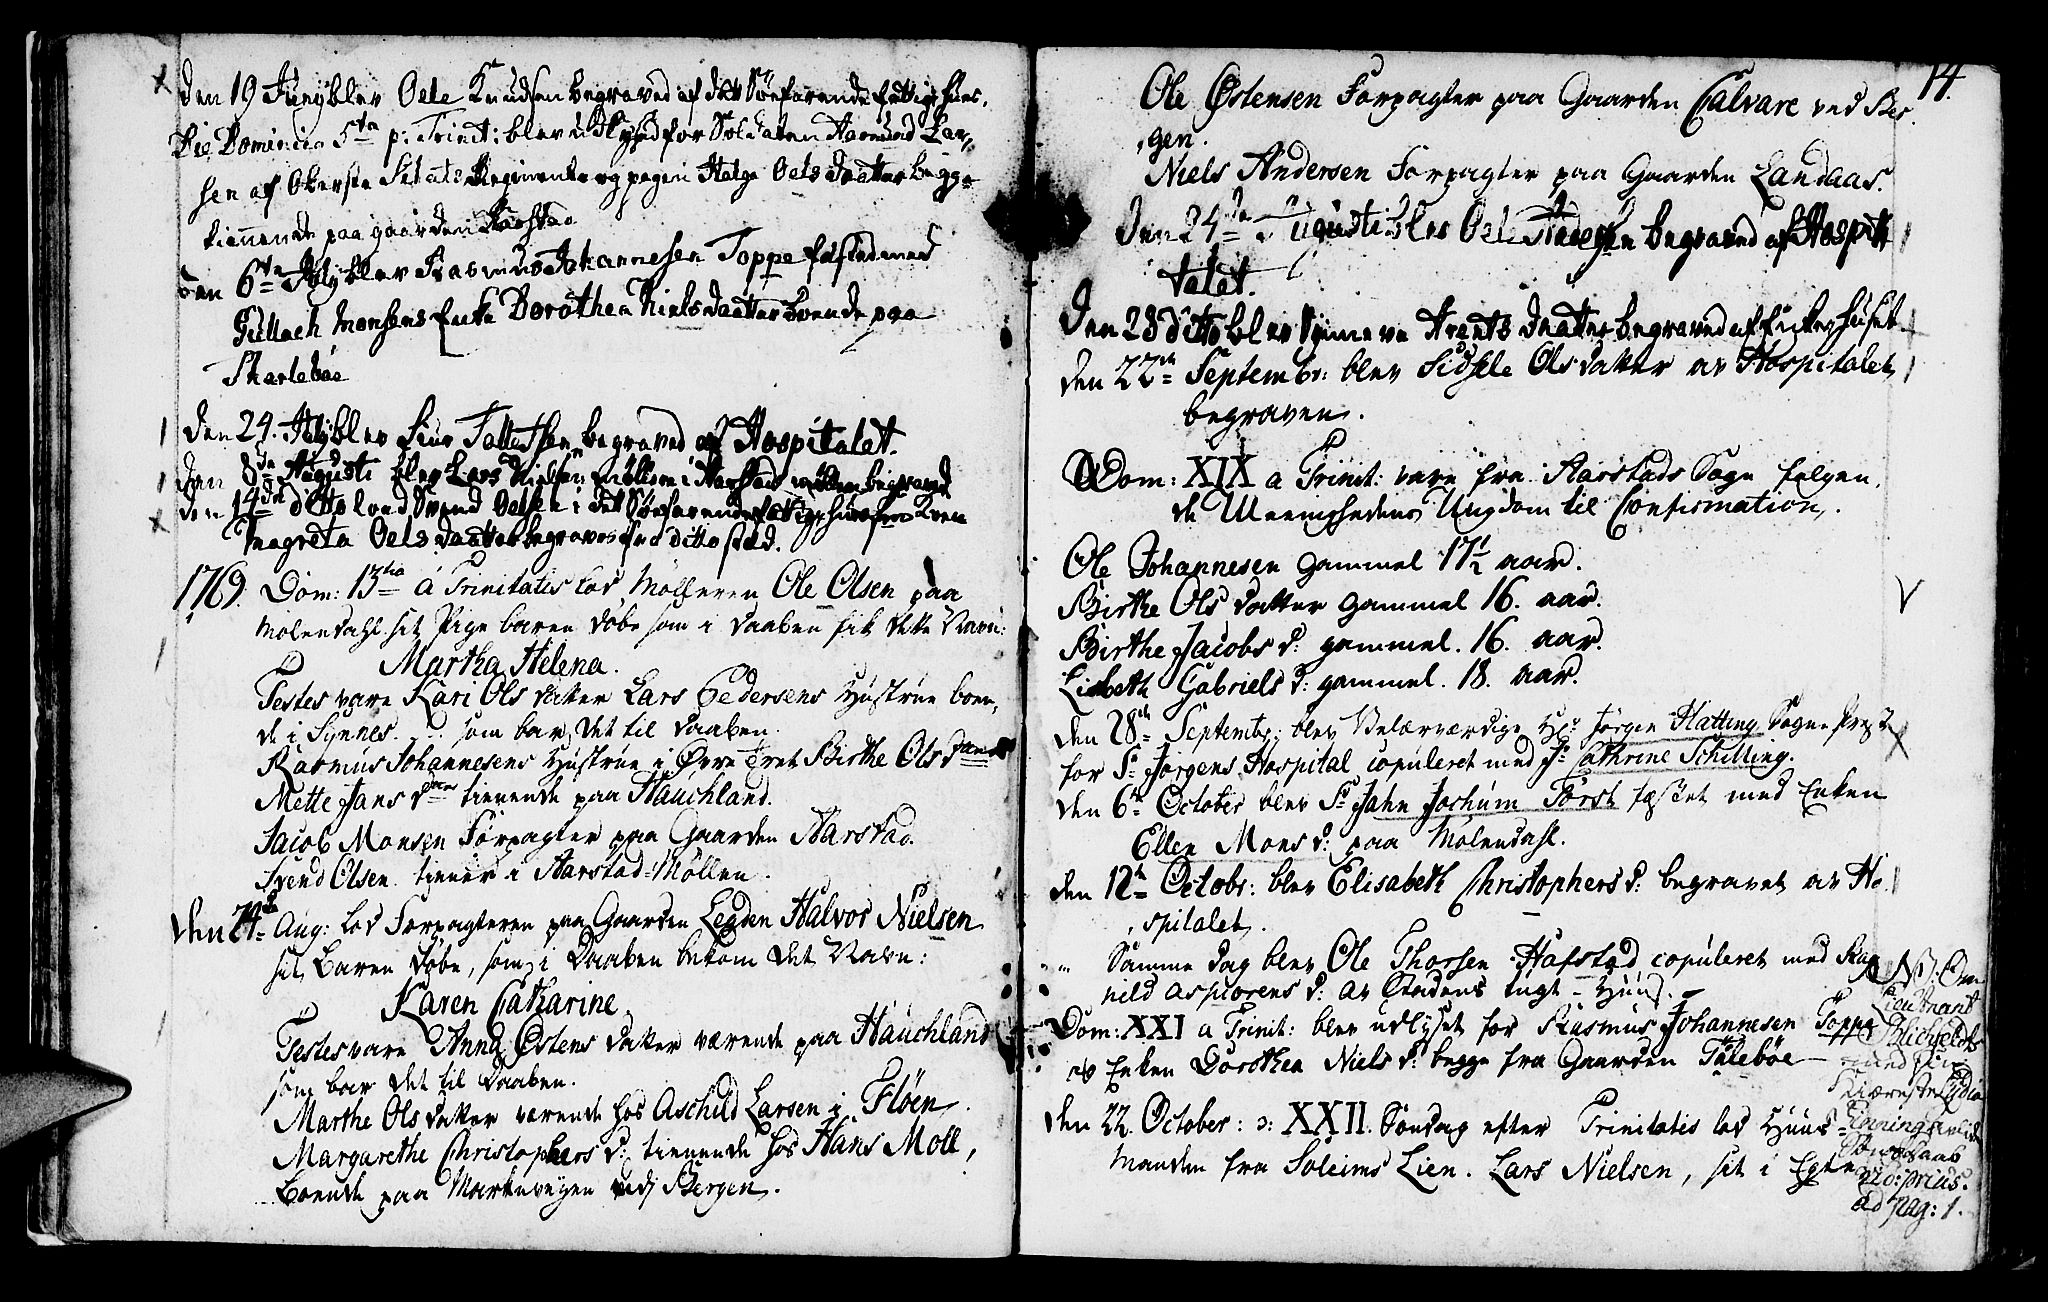 Den 19 Juny blev Oele Knudsen begraved af det Söefarende fattige Huus.
Die Dominica 5ta p: Trinit: blev udlyst for Soldaten Aamund Lar-
sen af Oberste Regiment og pigen Helge Oels daatter begge
tienende paa gaarden Aarstad
den 6te July blev Rasmus Johannesen Toppe fæsted med
Gullach Monsens Enke Dorothea Niels daatter boende paa
den 24. July blev Siur begraved af Hospitalet.
den 8de Augusti blev Lars Nielsen i Aarstad Möllen begraved
den 14de ditto lod Svend Oelsen i det Söefarende fattige huus
Magreta Oels daatter begraves fra ditto sted.
1769. Dom: 13tia á Trinitatis lod Mölleren Ole Olsen paa
Mölendahl sit Pige baren döbe som i daaben fik dette Navn:
Martha Helena.
Testes vare Kari Ols datter Lars Pedersens Hustrue boen,
de i Synnes. som bar det til daaben.
Rasmus Johannesens Hustrue i Øvre Birthe Ols Datter
Mette Jans dter tienende paa Hauchland.
Jacob Monsen Forpagter paa Gaarden Aarstad.
Svend Olsen tiener i Aarstad-Möllen.
den 24de Aug: lod Forpagteren paa Gaarden Legden Halvor Nielsen
sit Baren döbe, som i Daaben bekom det Navn:
Karen Catharine.
Testes vare Anna Østens datter værende paa Hauchland
som bar det til daaben.
Marthe Ols datter værende hos Aschild Larsen i Flöen.
Margarethe Christophers D: tienende hos Hans Moll,
boende paa Markeveyen ved Bergen.
14.
Ole Østensen Forpagter paa Gaarden Calvare ved Ber-
gen.
Niels Andersen Forpagter paa Gaarden Landaas.
Den 24de Augusti blev Oele begraved af Hospi-
talet.
Den 28 ditto blev Synneve Arents daatter begraved af Enkehuset
den 22de Septembr: blev Sidsele Ols datter av Hospitalet
begraven.
Dom: XIX a Trinit: vare fra Aarstads Sogn folgen,
de Meenighedens Ungdom til Confirmation.
Ole Johannesen gammel 17½ aar.
Birthe Ols datter gammel 16. aar.
Birthe Jacobs D: gammel. 16. aar.
Lisbeth Gabriels D: gammel. 18. aar.
den 28de Septembr: blev Velærværdige Hr: Jörgen Hatting Sogne Prest
for St Jörgens Hospital copuleret med Jfr Cathrine Schilling.
den 6te October blev Sr Jahn Jochum Forst fæstet med Enken
Ellen Mons D: paa Mölendahl.
den 12te Octobr: blev Elisabeth Christophers D: begravet av Ho-
spitalet.
" Samme dag blev Ole Thorsen Hafstad copuleret med Rag-
nild D: av Stadens tugt-Huus.
Dom: XXI a Trinit: blev udlyset for Rasmus Johannesen Toppe
og Enken Dorothea Niels D: begge fra Gaarden Talebøe
den 22. October: ɔ: XXII. Söndag efter Trinitatis lod Huus-
manden fra Soleims Lien. Lars Nielsen, sit i Egte
NB: Om
Lieutnant
med sin
Kiæreste Lydia
vid: prius.
ad pag: 1.